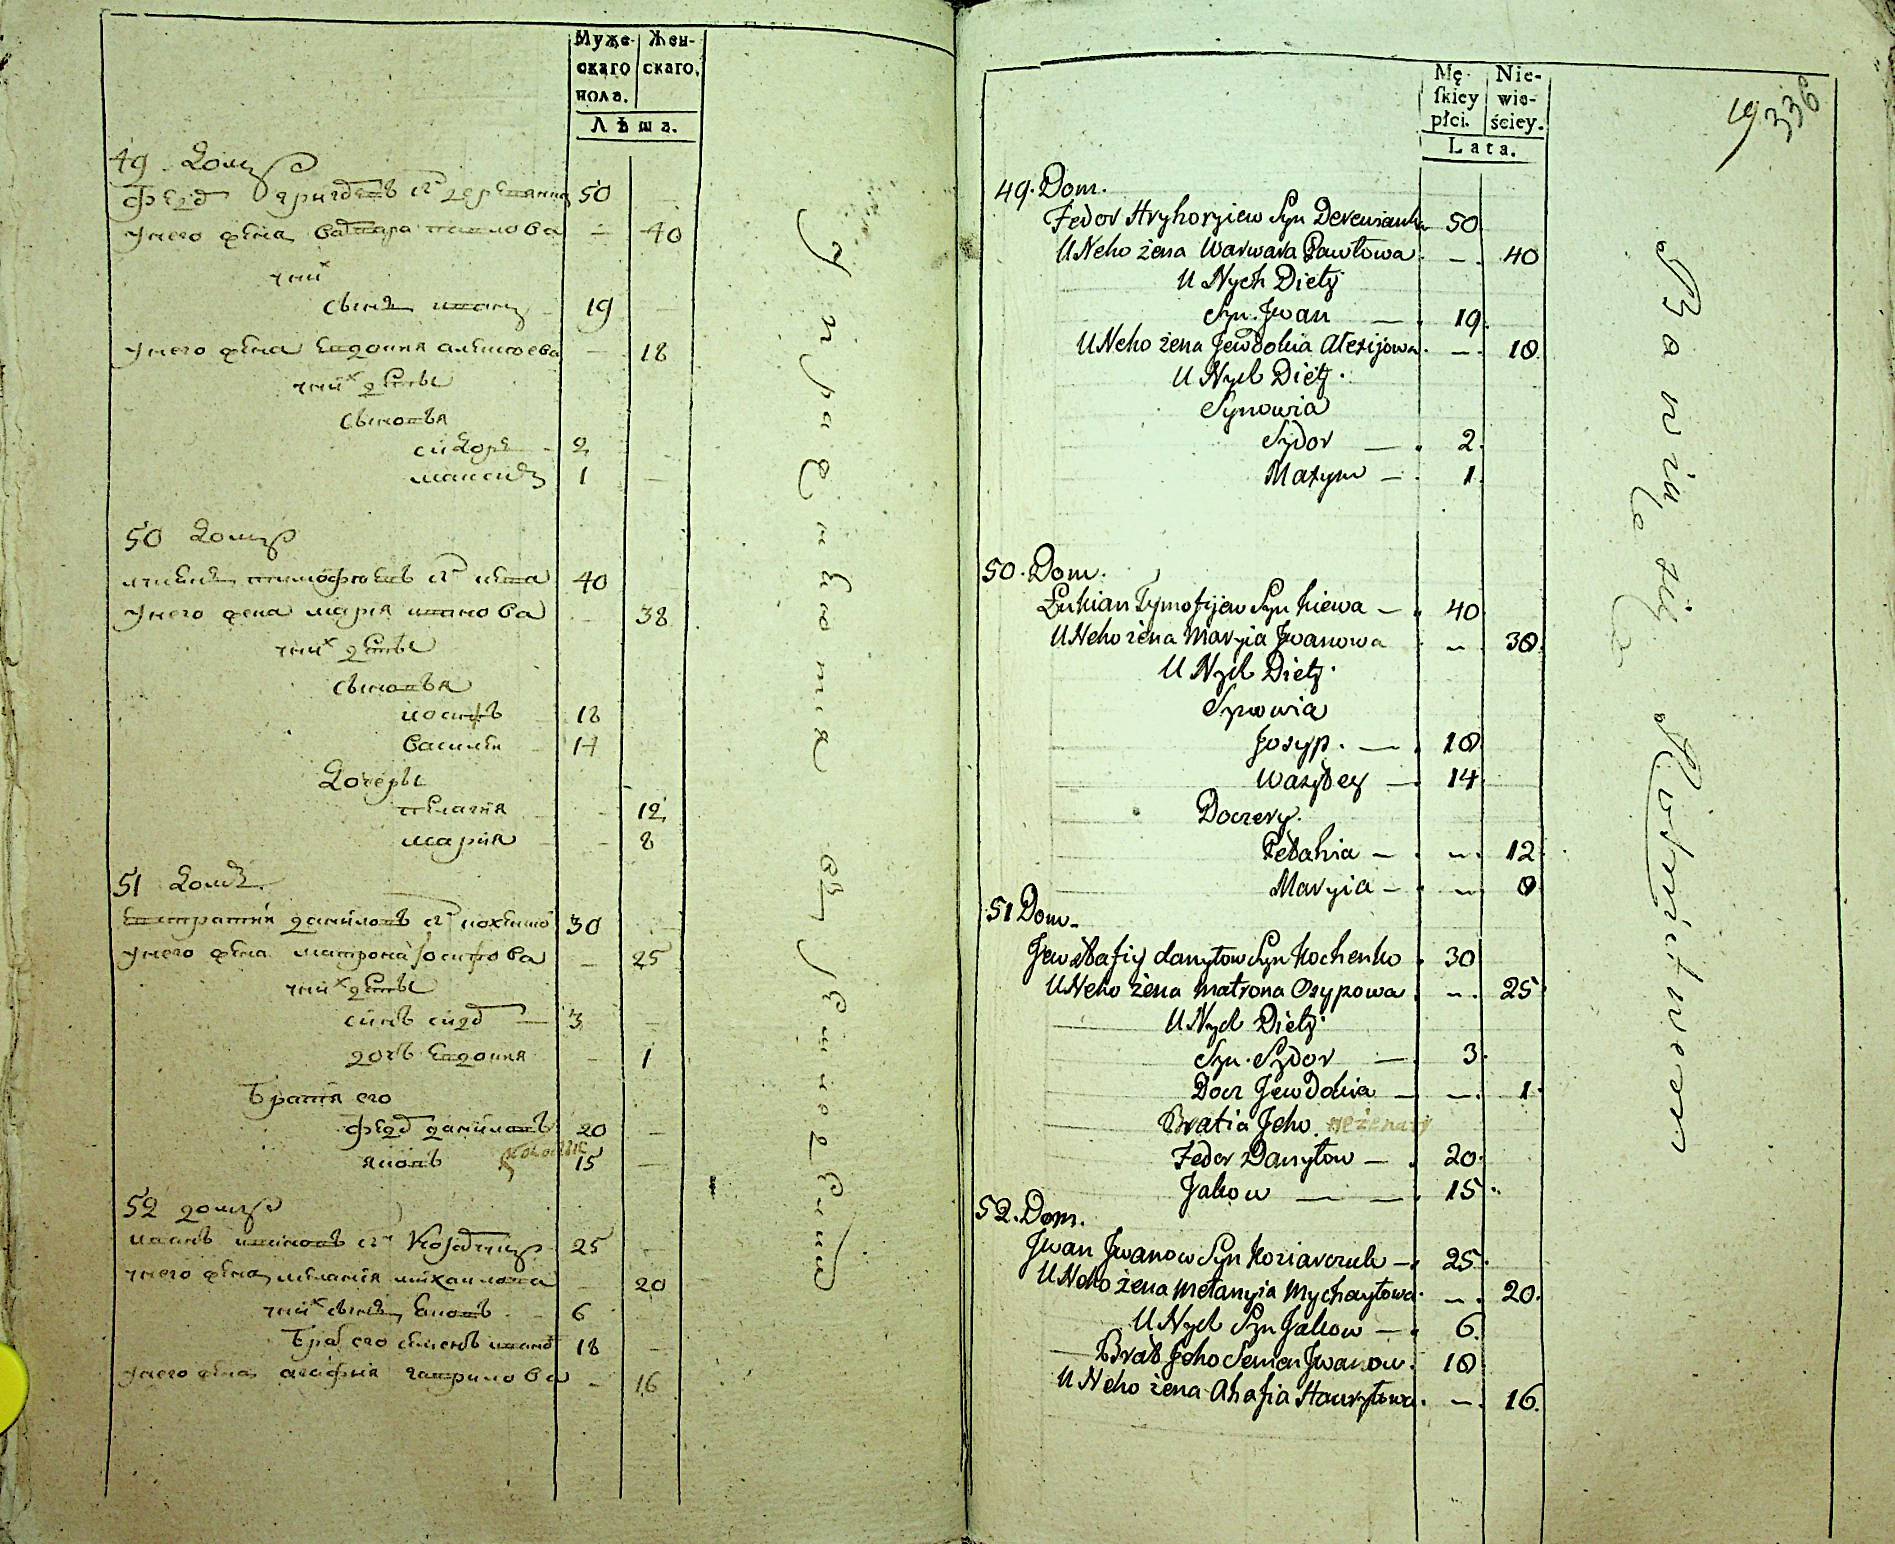 Муже-
скаго
пола.
Жен-
скаго.
Лѣта.
49 Домъ
Федор Григоревъ сын деревянка 50 —
у него жена Варвара павлова — 40
у них
сынъ иванъ 19 —
у него жена Евдокия алексеева — 18
у них дети
сыновья
сидоръ 2
максимъ 1 —
50 домъ
лукианъ тимофеевъ сын кева 40
у него жена мария иванова 38
у них дети
сыновья
иосипъ 18
василей 14
Дочеры
пелагия 12
мария 8
51 домъ
Евстратий даниловъ сын кохенко 30
у него жена матрона иосифова — 25
у них дети
синъ сидор 3 —
дочь Евдокия — 1
Братия его
Федор даниловъ 20 —
яковъ 15 —
52 домъ
иванъ ивановъ сын Козарчукъ 25
у него жена мелания михайлова 20
у них сынъ яковъ 6
Брат его семенъ иванов 18
у него жена агафия гаврилова — 16
Упражняются въ
Mę-
ſkiey
płci.
Nie-
wie-
ściey.
Lata.
19
336
49. Dom.
Fedor Hryhoryiew Syn Derewianka 50
U Neho żena Warwara Pawłowa — 40
U Nych Diety
Syn Jwan — 19.
U Neho żena Jewdokia Alexijowa — 18
U Nych Diety.
Synowia
Sydor — 2.
Maxym — 1
50. Dom.
Łukian Tymofijew Syn Kiewa — 40
U Neho żena Maryia Jwanowa — 38.
U Nych Diety.
Synowia
Josyp. — 18
Wasyley — 14
Doczery.
Pelahia — — 12
Maryia — — 8
51 Dom.
Jewstafiy Danyłow Syn Kochenko 30
U Neho żena Matrona Osypowa — 25
U Nych Diety.
Syn. Sydor — 3.
Docz Jewdokia — — 1.
Bratia Jeho nieżenaty
Fedor Danyłow — 20.
Jakow — — 15
52. Dom.
Jwan Jwanow Syn Koziarczuk — 25
U Neho żena Mełanyia Mychayłowa — 20.
U Nych Syn Jakow — 6.
Brat Jeho Semen Jwanow. 18
U Neho żena Ahafia Hawryłowa — 16.
Bawią się Rolnictwem